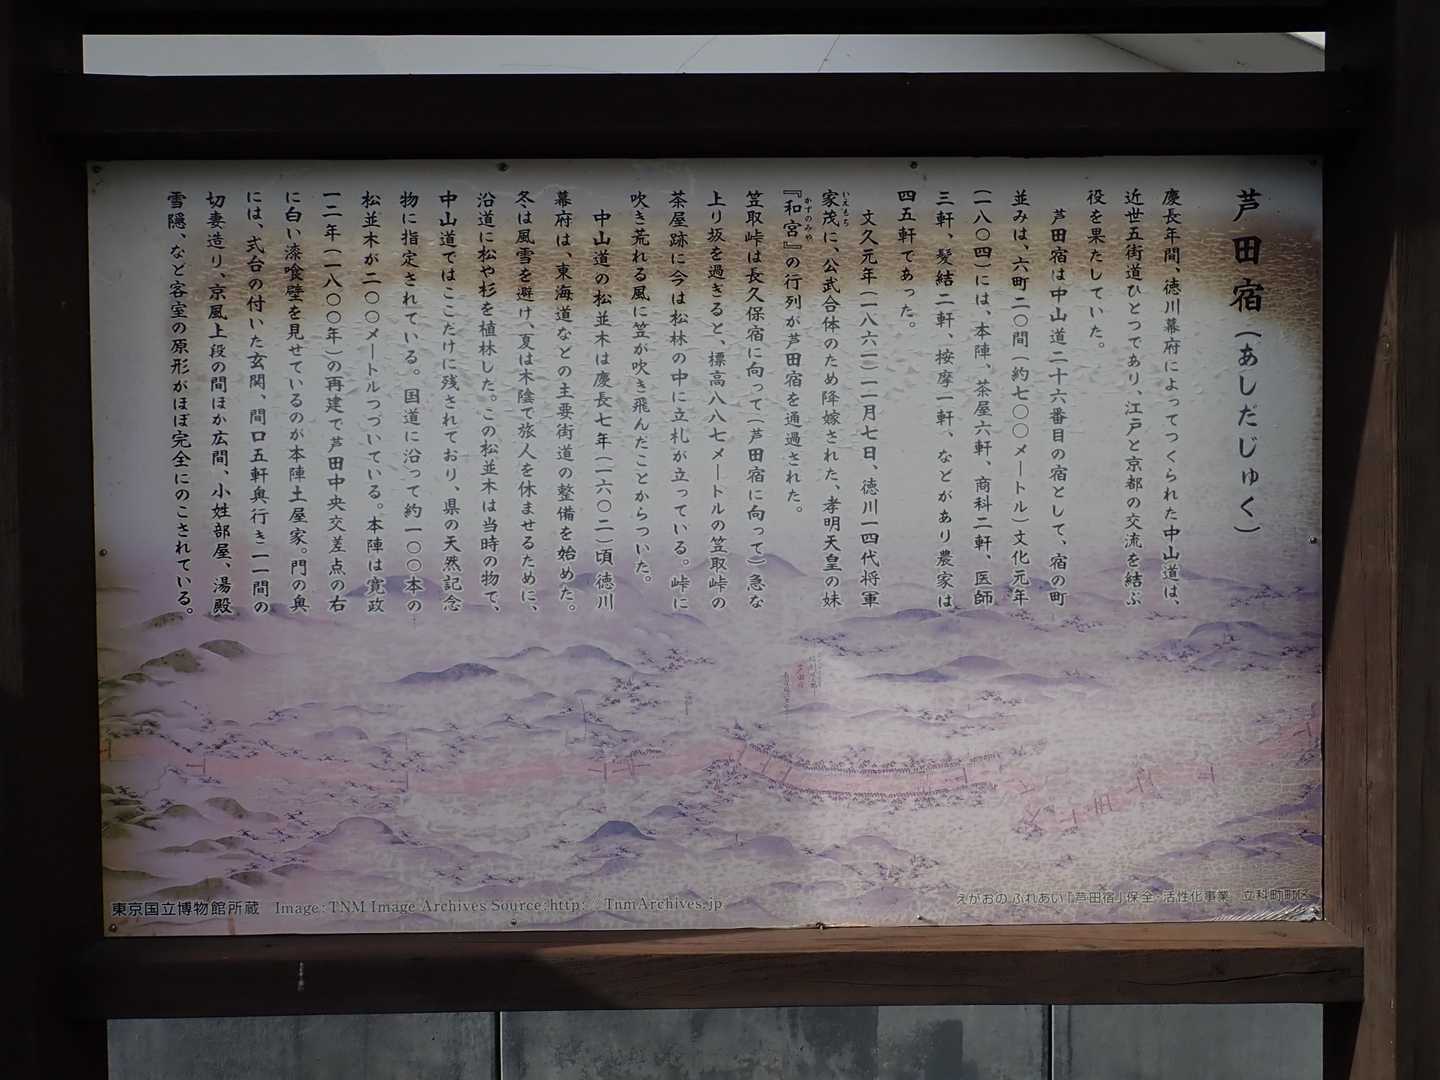 芦田宿（あしだじゅく）
慶長年間、徳川幕府によってつくられた中山道は、
近世五街道ひとつであり、江戸と京都の交流を結ぶ
役を果たしていた。
芦田宿は中山道二十六番目の宿として、宿の町
並みは、六町二〇間（約七〇〇メートル）文化元年
（一八〇四）には、本陣、茶屋六軒、商科二軒、医師
三軒、髪結二軒、按摩一軒、などがあり農家は
四五軒であった。
文久元年（一八六一）一一月七日、徳川一四代将軍
家茂に、公武合体のため降嫁された、孝明天皇の妹
いえもち
『和宮』の行列が芦田宿を通過された。
かずのみや
笠取峠は長久保宿に向って（芦田宿に向って）急な
上り坂を過ぎると、標高八八七メートルの笠取峠の
茶屋跡に今は松林の中に立札が立っている。峠に
吹き荒れる風に笠が吹き飛んだことからついた。
中山道の松並木は慶長七年（一六〇二）頃徳川
幕府は、東海道などの主要街道の整備を始めた。
冬は風雪を避け、夏は木陰で旅人を休ませるために、
沿道に松や杉を植林した。この松並木は当時の物で、
中山道ではここだけに残されており、県の天然記念
物に指定されている。国道に沿って約一〇〇本の
松並木が二〇〇メートルつづいている。本陣は寛政
一二年（一八〇〇年）の再建で芦田中央交差点の右
に白い漆喰壁を見せているのが本陣土屋家。門の奥
には、式台の付いた玄関、間口五軒奥行き一一間の
切妻造り、京風上段の間ほか広間、小姓部屋、湯殿
雪隠、など客室の原形がほぼ完全にのこされている。
東京国立博物館所蔵 Image: TNM Image Archives Source:http: TnmArchives.jp
えがおの ふれあい「芦田宿」保全・活性化事業 立科町町区